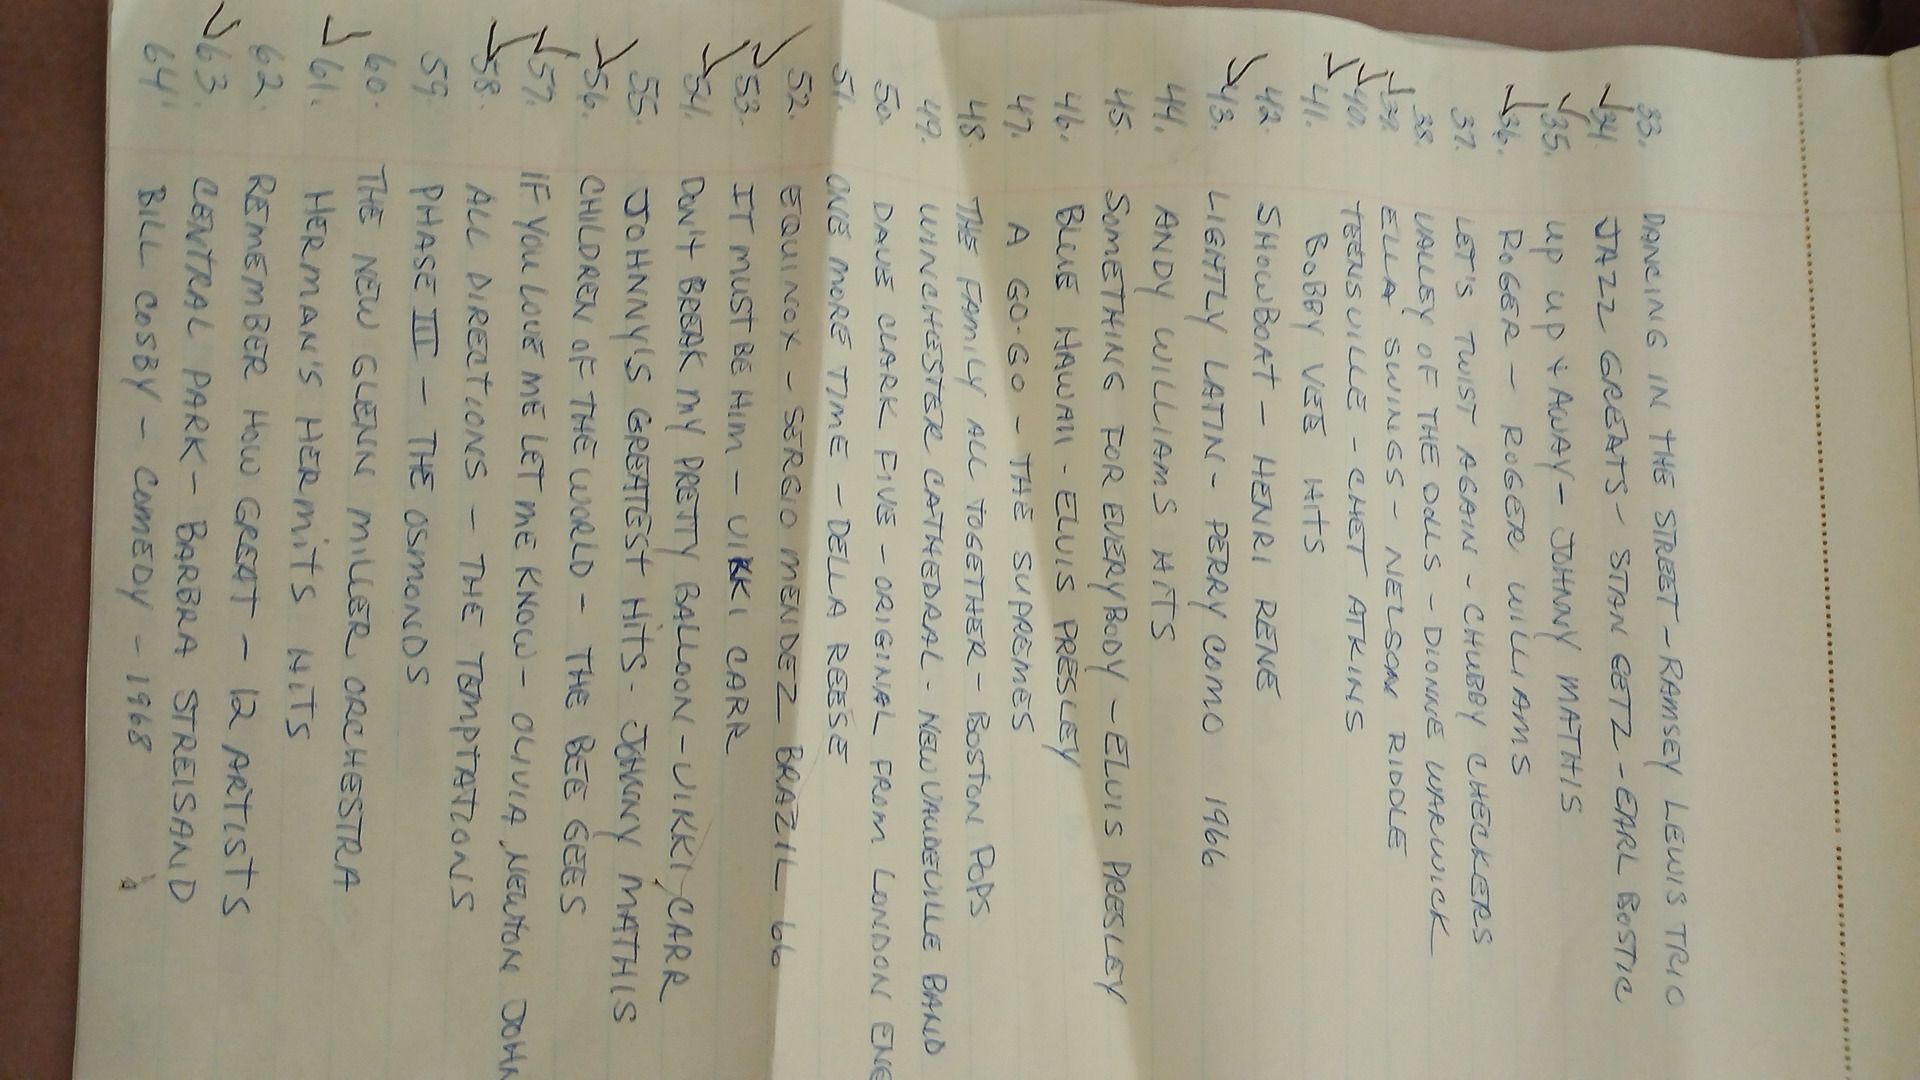 33. DANCING IN THE STREET - RAMSEY LEWIS TRIO
34. JAZZ GREATS - STAN GETZ - EARL BOSTIC
35. UP UP & AWAY - JOHNNY MATHIS
36. ROGER - ROGER WILLIAMS
37. LET'S TWIST AGAIN - CHUBBY CHECKERS
38. VALLEY OF THE DOLLS - DIONNE WARWICK
39. ELLA SWINGS - NELSON RIDDLE
40. TEENSVILLE - CHET ATKINS
41. BOBBY VEE HITS
42. SHOWBOAT - HENRI RENE
43. LIGHTLY LATIN - PERRY COMO 1966
44. ANDY WILLIAMS HITS
45. SOMETHING FOR EVERYBODY - ELVIS PRESLEY
46. BLUE HAWAII - ELVIS PRESLEY
47. A GO-GO - THE SUPREMES
48. THE FAMILY ALL TOGETHER - BOSTON POPS
49. WINCHESTER CATHEDRAL - NEW VAUDEVILLE BAND
50. DAVE CLARK FIVE - ORIGINAL FROM LONDON ENG
51. ONE MORE TIME - DELLA REESE
52. EQUINOX - SERGIO MENDEZ BRAZIL 66
53. IT MUST BE HIM - VIKKI CARR
54. DON'T BREAK MY PRETTY BALLOON - VIKKI CARR
55. JOHNNY'S GREATEST HITS - JOHNNY MATHIS
56. CHILDREN OF THE WORLD - THE BEE GEES
57. IF YOU LOVE ME LET ME KNOW - OLIVIA NEWTON JOHN
58. ALL DIRECTIONS - THE TEMPTATIONS
59. PHASE III - THE OSMONDS
60. THE NEW GLENN MILLER ORCHESTRA
61. HERMAN'S HERMITS HITS
62. REMEMBER HOW GREAT - 12 ARTISTS
63. CENTRAL PARK - BARBRA STREISAND
64. BILL COSBY - COMEDY - 1968